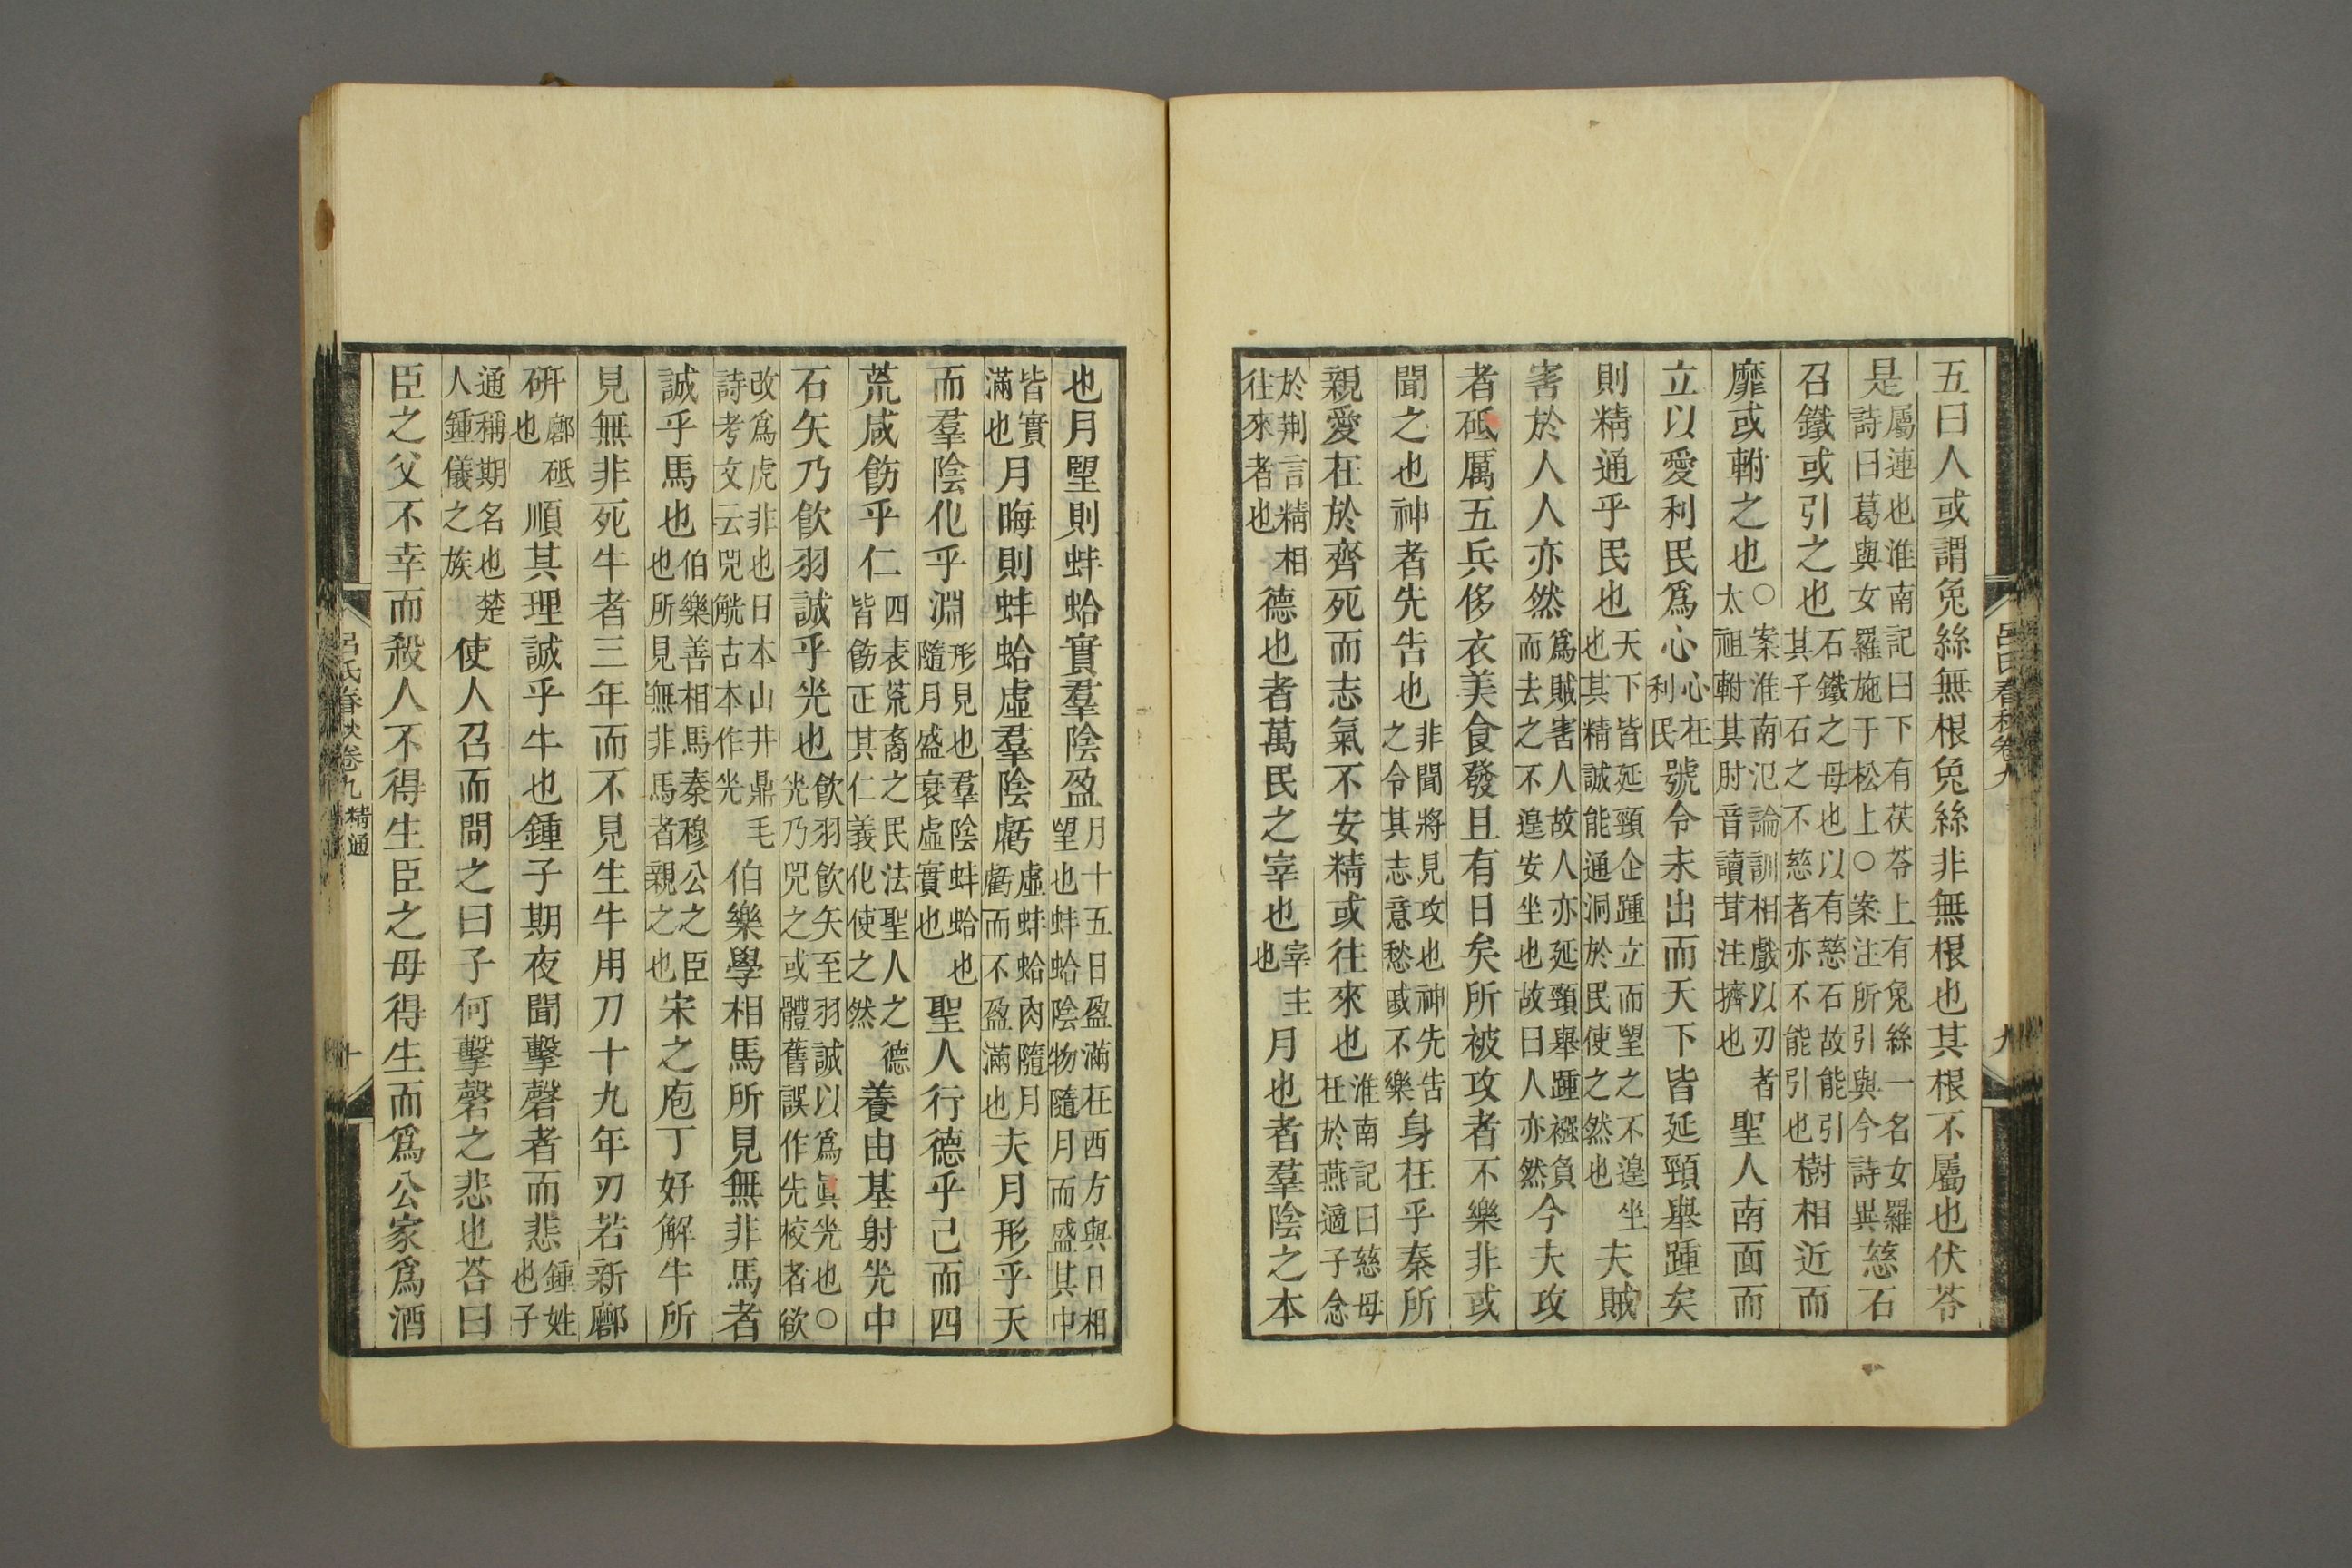 呂氏春秋卷九
九
五曰人或謂兔絲無根兔絲非無根也其根不屬也伏苓
是屬連也淮南記曰下有茯苓上有兔絲一名女羅詩曰葛與女羅施于松上○案注所引與今詩異慈石
召鐵或引之也石鐵之母也以有慈石故能引其子石之不慈者亦不能引也樹相近而
靡或軵之也○案淮南氾論訓相戲以刃者太祖軵其肘音讀茸注擠也聖人南面而
立以愛利民爲心心在利民號令未出而天下皆延頸舉踵矣
則精通乎民也天下皆延頸企踵立而望之不遑坐也其精誠能通洞於民使之然也夫賊
害於人人亦然爲賊害人故人亦延頸舉踵襁負而去之不遑安坐也故曰人亦然今夫攻
者砥厲五兵侈衣美食發且有日矣所被攻者不樂非或
聞之也神者先告也非聞將見攻也神先告之令其志意愁戚不樂身在乎秦所
親愛在於齊死而志氣不安精或往來也淮南記曰慈母在於燕適子念
於荆言精相往來者也德也者萬民之宰也宰主也月也者羣陰之本
也月望則蚌蛤實羣陰盈月十五日盈滿在西方與日相望也蚌蛤陰物隨月而盛其中
皆實滿也月晦則蚌蛤虛羣陰虧虛蚌蛤肉隨月虧而不盈滿也夫月形乎天
而羣陰化乎淵形見也羣陰蚌蛤也隨月盛衰虛實也聖人行德乎己而四
荒咸飭乎仁四表荒裔之民法聖人之德皆飭正其仁義化使之然養由基射光中
石矢乃飮羽誠乎光也飮羽飮矢至羽誠以爲眞光也○光乃兕之或體舊誤作先校者欲
改爲虎非也日本山井鼎毛詩考文云兕觥古本作光伯樂學相馬所見無非馬者
誠乎馬也伯樂善相馬秦穆公之臣也所見無非馬者親之也宋之庖丁好解牛所
見無非死牛者三年而不見生牛用刀十九年刃若新𨟖
硏𨟖砥也順其理誠乎牛也鍾子期夜聞擊磬者而悲鍾姓也子
通稱期名也楚人鍾儀之族使人召而問之曰子何擊磬之悲也荅曰
臣之父不幸而殺人不得生臣之母得生而爲公家爲酒
呂氏春秋卷九 精通
十